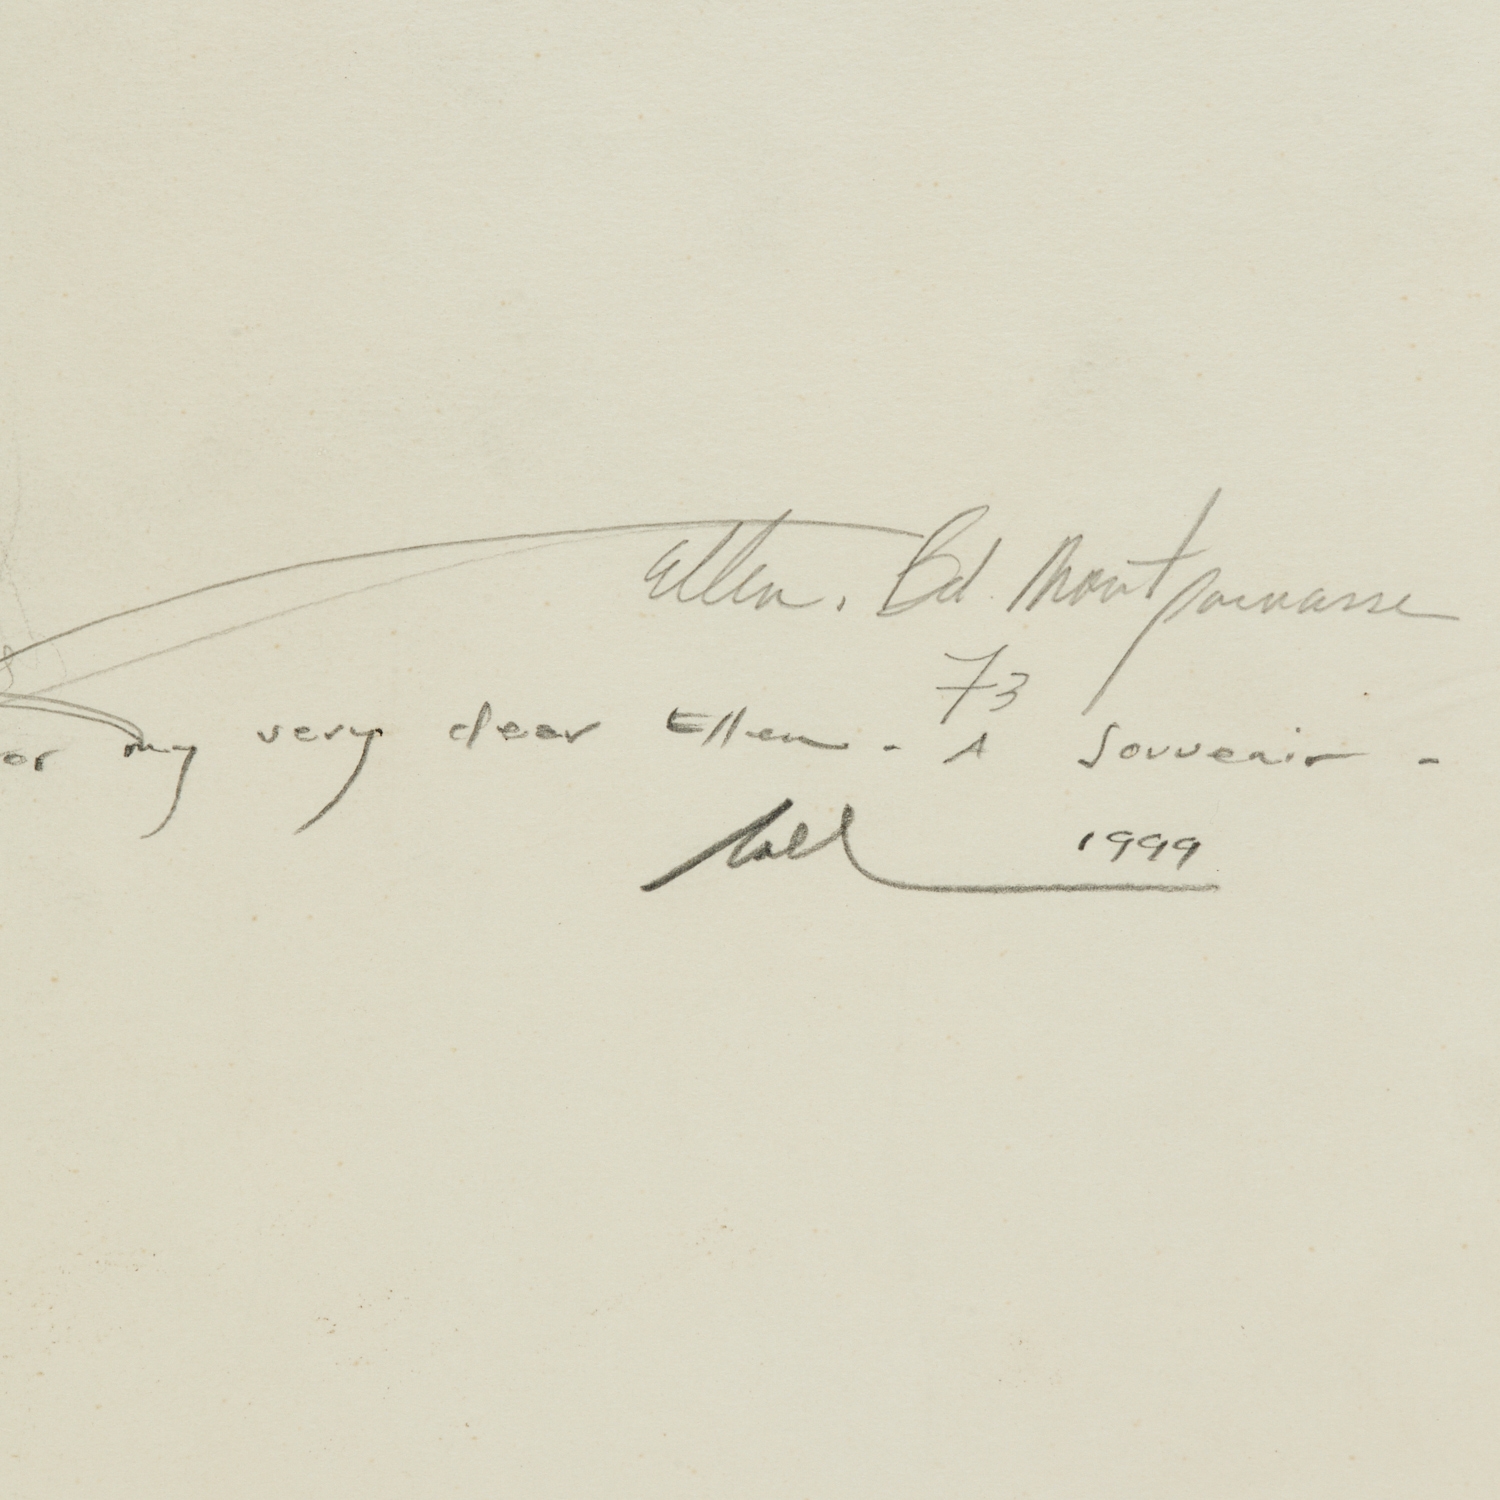 Ellen. Bd. Montparnasse
73
or my very dear Ellen - A Souvenir -
1999